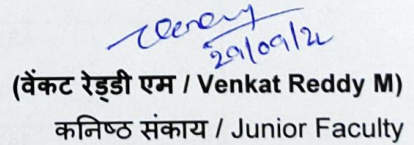 (वेंकट रेड्डी एम / Venkat Reddy M)
कनिष्ठ संकाय / Junior Faculty